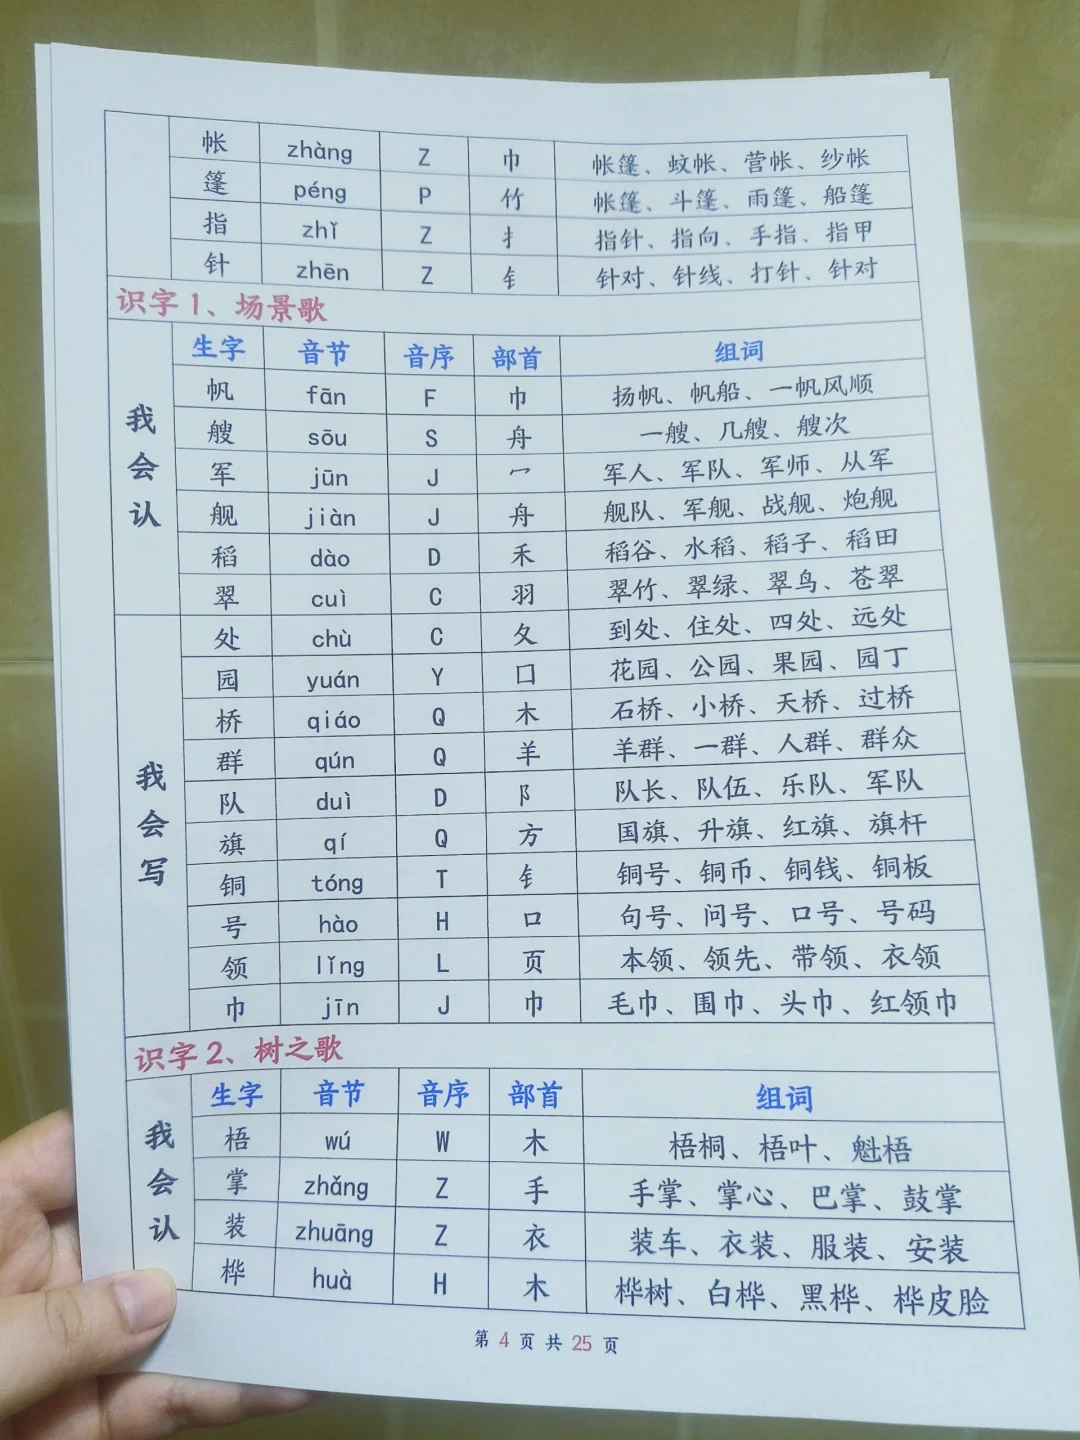 帐 zhàng Z 巾 帐篷、蚊帐、营帐、纱帐
篷 péng P 竹 帐篷、斗篷、雨篷、船篷
指 zhǐ Z 扌 指针、指向、手指、指甲
针 zhēn Z 钅 针对、针线、打针、针对
识字1、场景歌
我会认
生字 音节 音序 部首 组词
帆 fān F 巾 扬帆、帆船、一帆风顺
艘 sōu S 舟 一艘、几艘、艘次
军 jūn J 冖 军人、军队、军师、从军
舰 jiàn J 舟 舰队、军舰、战舰、炮舰
稻 dào D 禾 稻谷、水稻、稻子、稻田
翠 cuì C 羽 翠竹、翠绿、翠鸟、苍翠
我会写
处 chù C 夂 到处、住处、四处、远处
园 yuán Y 囗 花园、公园、果园、园丁
桥 qiáo Q 木 石桥、小桥、天桥、过桥
群 qún Q 羊 羊群、一群、人群、群众
队 duì D 阝 队长、队伍、乐队、军队
旗 qí Q 方 国旗、升旗、红旗、旗杆
铜 tóng T 钅 铜号、铜币、铜钱、铜板
号 hào H 口 句号、问号、口号、号码
领 lǐng L 页 本领、领先、带领、衣领
巾 jīn J 巾 毛巾、围巾、头巾、红领巾
识字2、树之歌
我会认
生字 音节 音序 部首 组词
梧 wú W 木 梧桐、梧叶、魁梧
掌 zhǎng Z 手 手掌、掌心、巴掌、鼓掌
装 zhuāng Z 衣 装车、衣装、服装、安装
桦 huà H 木 桦树、白桦、黑桦、桦皮脸
第 4 页 共 25 页